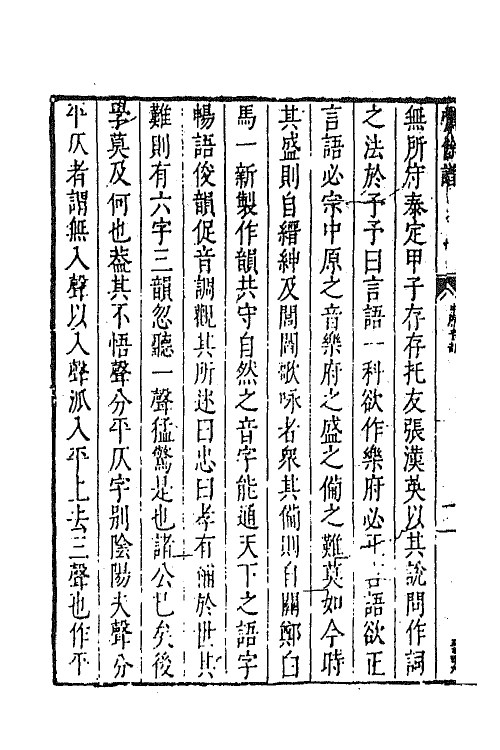 無所守泰定甲子存存托友張漢英以其說問作詞
之法於予予曰言語一科欲作樂府必正言語欲正
言語必宗中原之音樂府之盛之備之難莫如今時
其盛則自縉紳及閭閻歌咏者衆其備則自關鄭白
馬一新製作韻共守自然之音字能通天下之語字
暢語俊韻促音調觀其所述曰忠曰孝有補於世其
難則有六字三韻忽聽一聲猛驚是也諸公已矣後
學莫及何也葢其不悟聲分平仄字别陰陽夫聲分
平仄者謂無入聲以入聲派入平上去三聲也作平